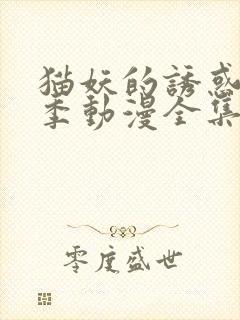 猫妖的誘惑
季動漫全集
零度盛世